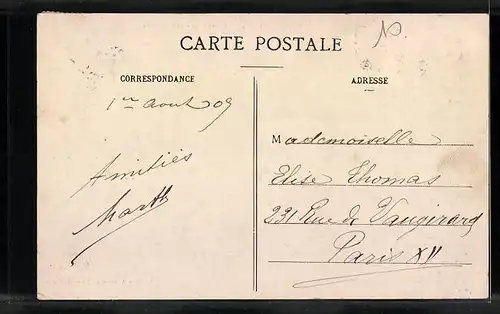 CARTE POSTALE
CORRESPONDANCE
1er Aout 09
Amitiés
ADRESSE
Mademoiselle
Elise Thomas
231 Rue de Vaugirard
Paris XV